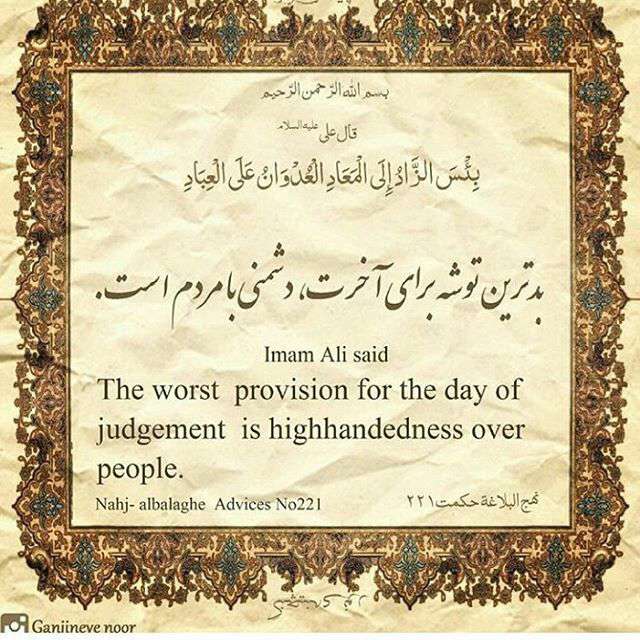 بسم الله الرّحمن الرّحیم
قال علی علیه السلام
بِئْسَ الزَّادُ إِلَى الْمَعَادِ الْعُدْوَانُ عَلَى الْعِبَادِ
بدترین توشه برای آخرت، دشمنی با مردم است.
Imam Ali said
The worst provision for the day of
judgement is highhandedness over
people.
Nahj- albalaghe Advices No221
نهج البلاغة حکمت ۲۲۱
Ganjineye noor